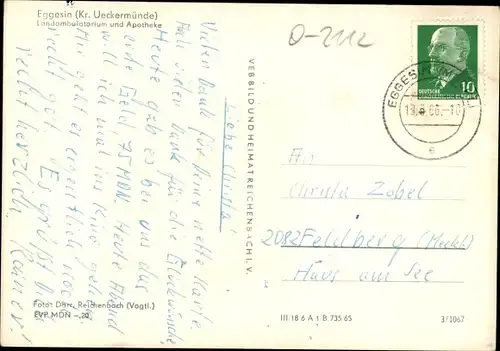 Eggesin (Kr. Ueckermünde)
Landambulatorium und Apotheke
O-2112
Liebe Christa!
Vielen Dank für Deine nette Karte
Hab vielen Dank für die Glückwünsche,
Heute gab es bei uns das
erste Geld 75 MDN. Heute Abend
will ich mal ins Kino gehen.
Mir geht es eigentlich noch
recht gut. Es grüßt Dich
recht herzlich Rainer!
Foto: Darr, Reichenbach (Vogtl.)
EVP MDN -,20
VEB BILD UND HEIMAT REICHENBACH I. V.
DEUTSCHE
10
EGGESIN
e
An
Christa Zobel
2082 Feldberg (Meckl)
Haus am See
III 18 6 A 1 B 735 65
3/1067